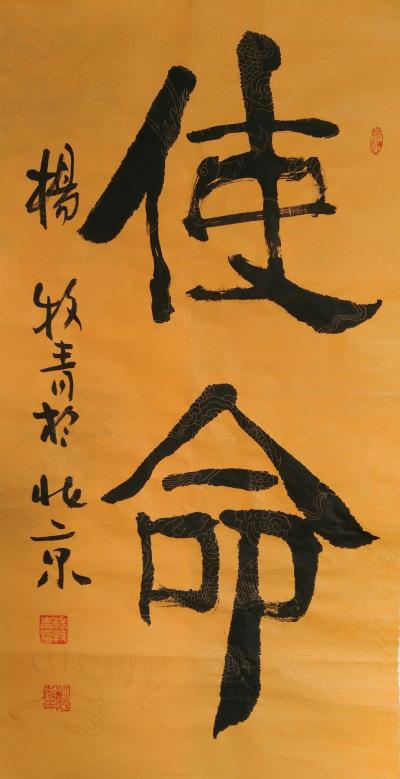 使命
楊牧青於北京